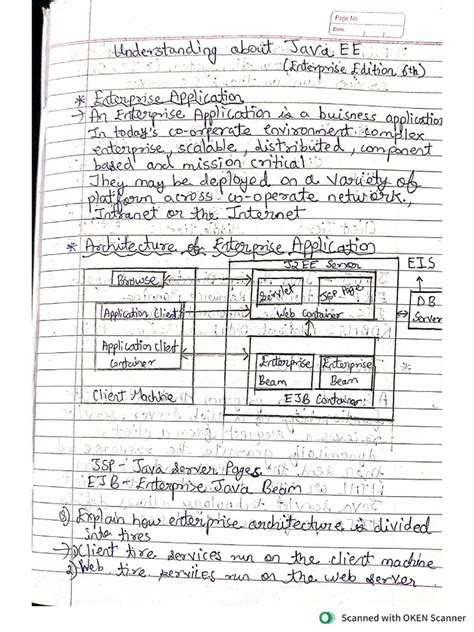 Page No
Date
Understanding about Java EE
(Enterprise Edition 6th)
* Enterprise Application
→ An Enterprise Application is a buisness application
In today's co-operate environment complex
enterprise, scalable, distributed, component
based and mission critical.
They may be deployed on a variety of
platform across co-operate network.,
Intranet or the Internet
* Architecture of Enterprise Application
J2EE Server
EIS
Browse
Servlet
JSP Page
DB
Server
Application Client
Web Container
Application Client
Container
Enterprise
Beam
Enterprise
Beam
Client Machine
EJB Container
JSP - Java Server Pages
EJB - Enterprise Java Beam
Q) Explain how enterprise architecture is divided
into tires
→ 1) Client tire services run on the client machine
2) Web tire services run on the web server
Scanned with OKEN Scanner